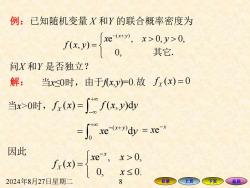 例：已知随机变量 X 和Y 的联合概率密度为
f(x, y) = { xe^{-(x+y)}, x > 0, y > 0,
0, 其它.
问X 和Y 是否独立?
解： 当x≤0时，由于f(x,y)=0.故 f_X(x) = 0
当x>0时，f_X(x) = ∫_{-∞}^{+∞} f(x, y)dy
= ∫_0^{+∞} xe^{-(x+y)}dy = xe^{-x}
因此
f_X(x) = { xe^{-x}, x > 0,
0, x ≤ 0.
2024年8月27日星期二 8